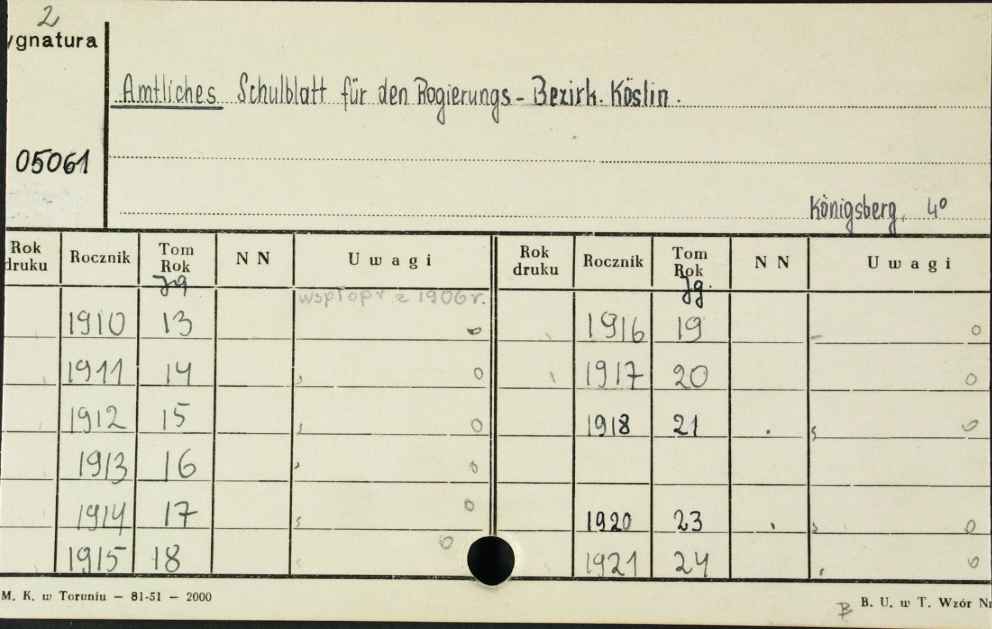 2
ygnatura
Amtliches Schulblatt für den Rogierungs-Bezirk. Köslin.
05061
Königsberg, 4°
Rok druku Rocznik Tom Rok Jg NN Uwagi Rok druku Rocznik Tom Rok Jg. NN Uwagi
wspłopr z 1906 r.
1910 13 0 1916 19 0
1911 14 0 1917 20 0
1912 15 0 1918 21 0
1913 16 0
1914 17 0 1920 23 0
1915 18 0 1921 24 0
M. K. w Toruniu — 81-51 — 2000
B B. U. w T. Wzór Nr